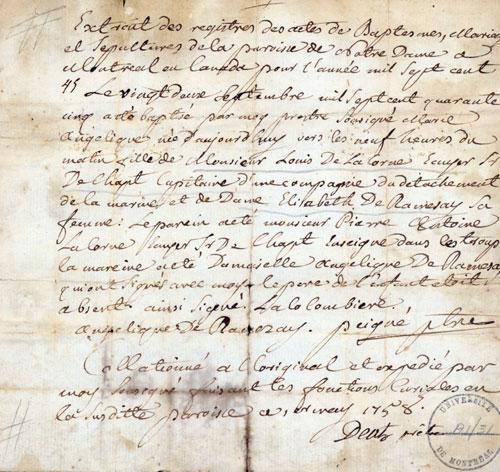 Extrait des registres des actes de Baptesmes, Mariag
et Sepultures de la paroisse de Notre Dame a
Montreal en Canada pour l'année mil Sept cent
45 Le vingt deux Septembre mil Sept cent quarante
cinq a été baptisé par moy prestre Sousigné Marie
Angelique née d'aujourdhuy vers les neuf heures du
matin fille de Monsieur Louis De La Corne Ecuyer Sr
De Chapt Capitaine d'une compagnie du détachement
de la marine et de Dame Elisabeth De Ramesay Sa
femme: Le parein a eté monsieur Pierre Antoine
La Corne Ecuyer Sr De Chapt Enseigne dans les troup
la mareine a eté Damoiselle Angelique De Ramesay
qui ont signés avec moy le pere de l'enfant etoit
absent ainsi signé. La Colombiere.
Angelique De Ramezay. peigné ptre
Collationné a l'original et expedié par
moy Sousigné faisant les fonctions Curiales en
la Susditte paroisse a 1758.
Deat
UNIVERSITÉ
DE MONTRÉAL